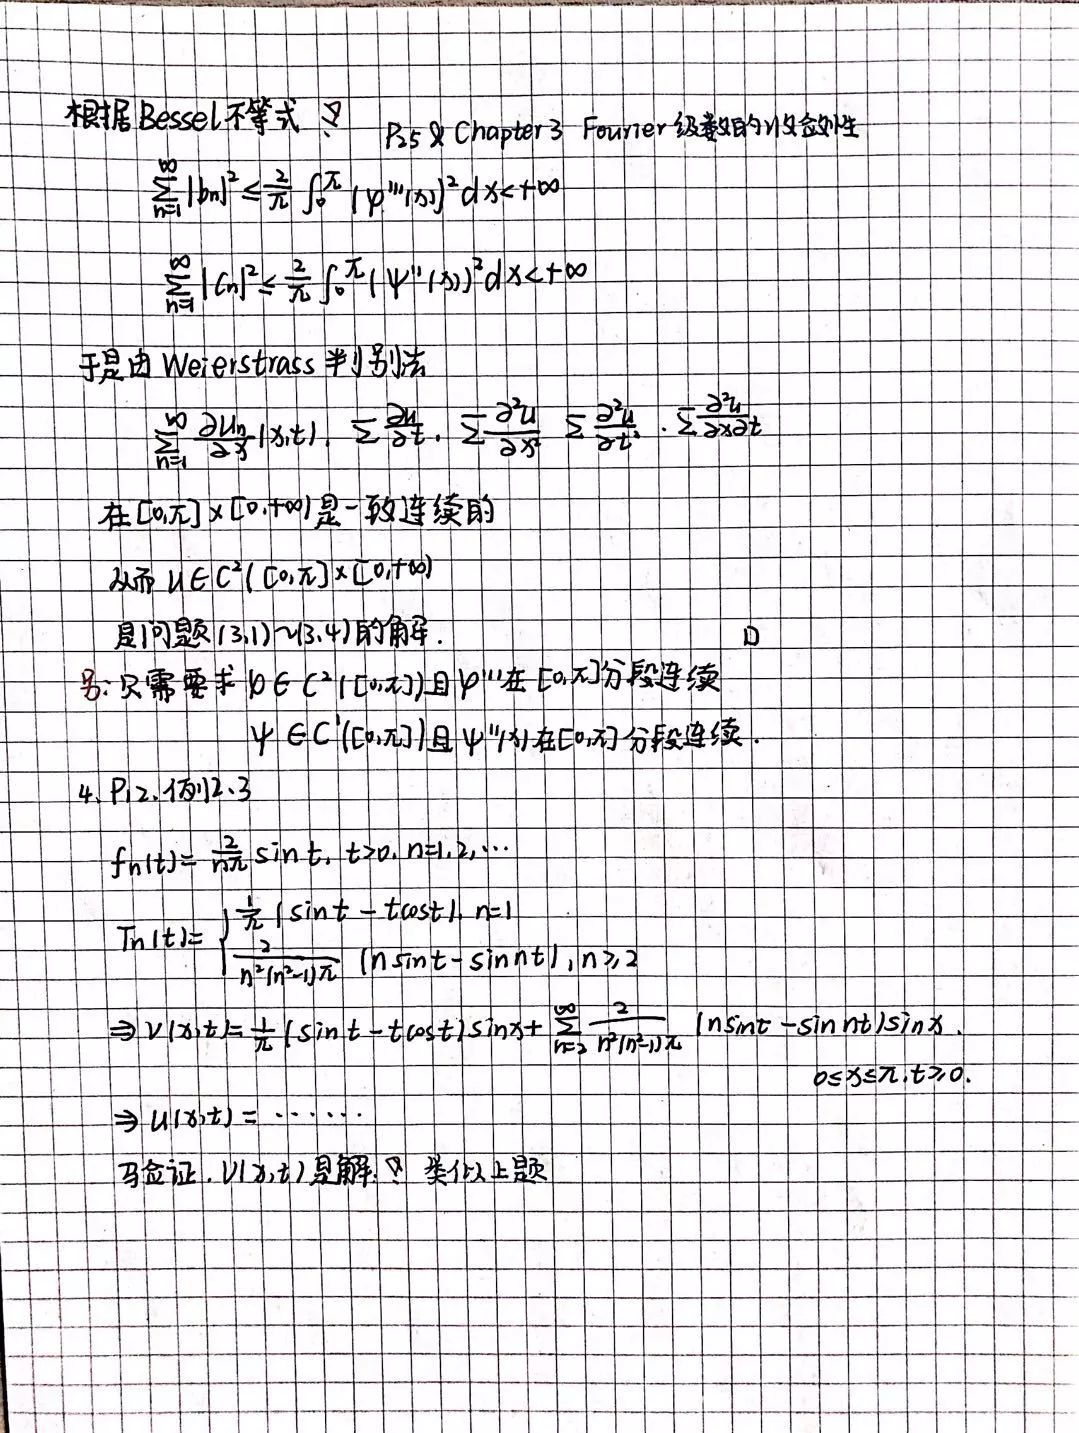 根据Bessel不等式
P25 & Chapter3 Fourier级数的收敛性
∑_{n=1}^{∞} |bn|² ≤ 2/π ∫_0^π (φ'''(x))² dx < +∞
∑_{n=1}^{∞} |Cn|² ≤ 2/π ∫_0^π (ψ''(x))² dx < +∞
于是由Weierstrass判别法
∑_{n=1}^{∞} ∂un/∂x (x,t), ∑ ∂u/∂t, ∑ ∂²u/∂x² ∑ ∂²u/∂t², ∑ ∂²u/∂x∂t
在[0,π]×[0,+∞)是一致连续的
从而 u∈C²([0,π]×[0,+∞)
是问题(3,1)~(3,4)的解. □
另:只需要求 φ∈C²([0,π])且φ'''在[0,π]分段连续
ψ∈C¹([0,π])且ψ''(x)在[0,π]分段连续.
4, P12.例2.3
fn(t)= 2/nπ sint, t>0, n=1,2,⋯
Tn(t)= { 1/π (sint-tcost), n=1
2/n²(n²-1)π (nsint-sinnt), n≥2
⇒ v(x,t)= 1/π (sint-tcost)sinx+ ∑_{n=2}^{∞} 2/n²(n²-1)π (nsint-sinnt)sinx.
0≤x≤π,t≥0.
⇒ u(x,t)= ⋯⋯
验证.v(x,t)是解. 类似上题